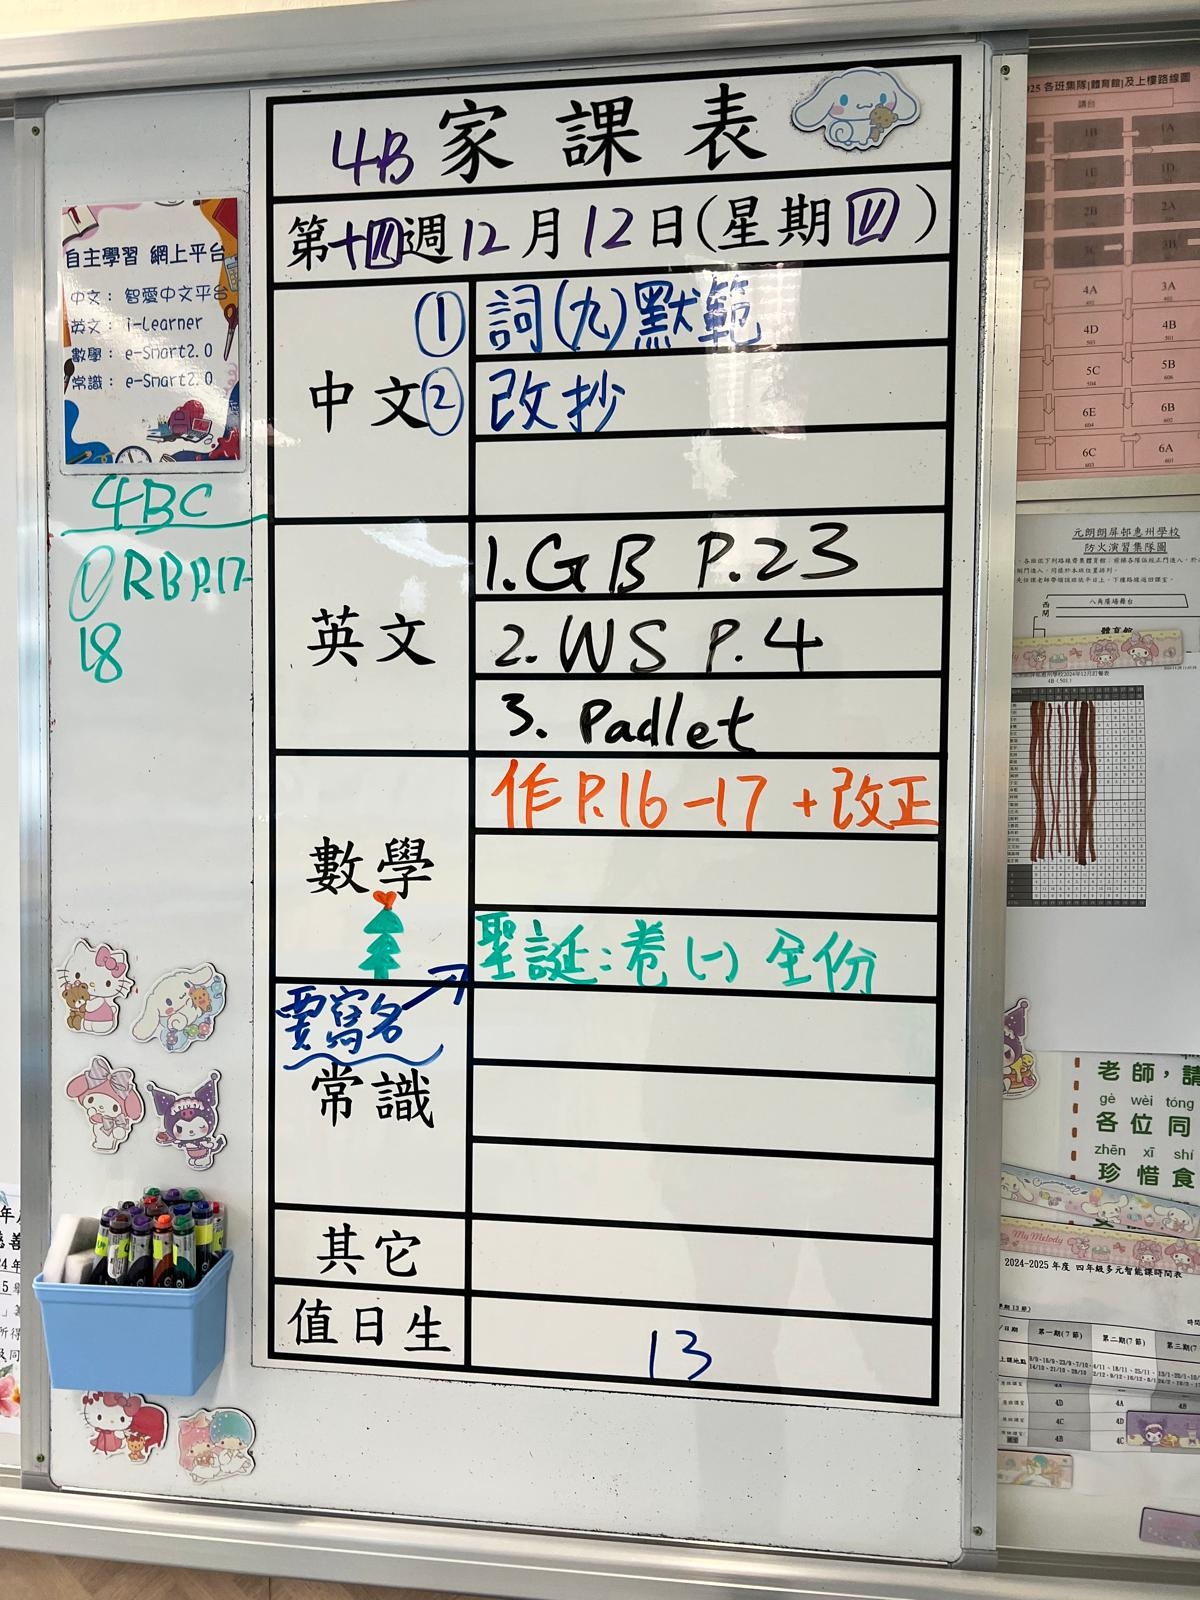 4B家課表
第十四週12月12日(星期四)
中文
① 詞(九)默範
② 改抄
英文
1. GB P.23
2. WS P.4
3. Padlet
數學
作P.16-17 + 改正
聖誕:卷(一) 全份
要寫名
常識
其它
值日生
13
自主學習 網上平台
中文: 智愛中文平台
英文: i-Learner
數學: e-Smart2.0
常識: e-Smart2.0
4BC
① RB P.17-
18
025 各班集隊|體育館|及上樓路線圖
講台
1B 1A
1E 1D
2B 2A
3C 3B
4A 3A
4D 4B
5C 5B
6E 6B
6C 6A
元朗朗屏邨惠州學校
防火演習集隊圖
八角廣場舞台
體育館
4B (501)
老師,請
gè wèi tóng
各位同
zhēn xī shí
珍惜食
My Melody
2024-2025 年度 四年級多元智能課時間表
第一期(7節) 第二期(7節) 第三期(7
4A
4D 4A 4B
4C 4D
4B 4C